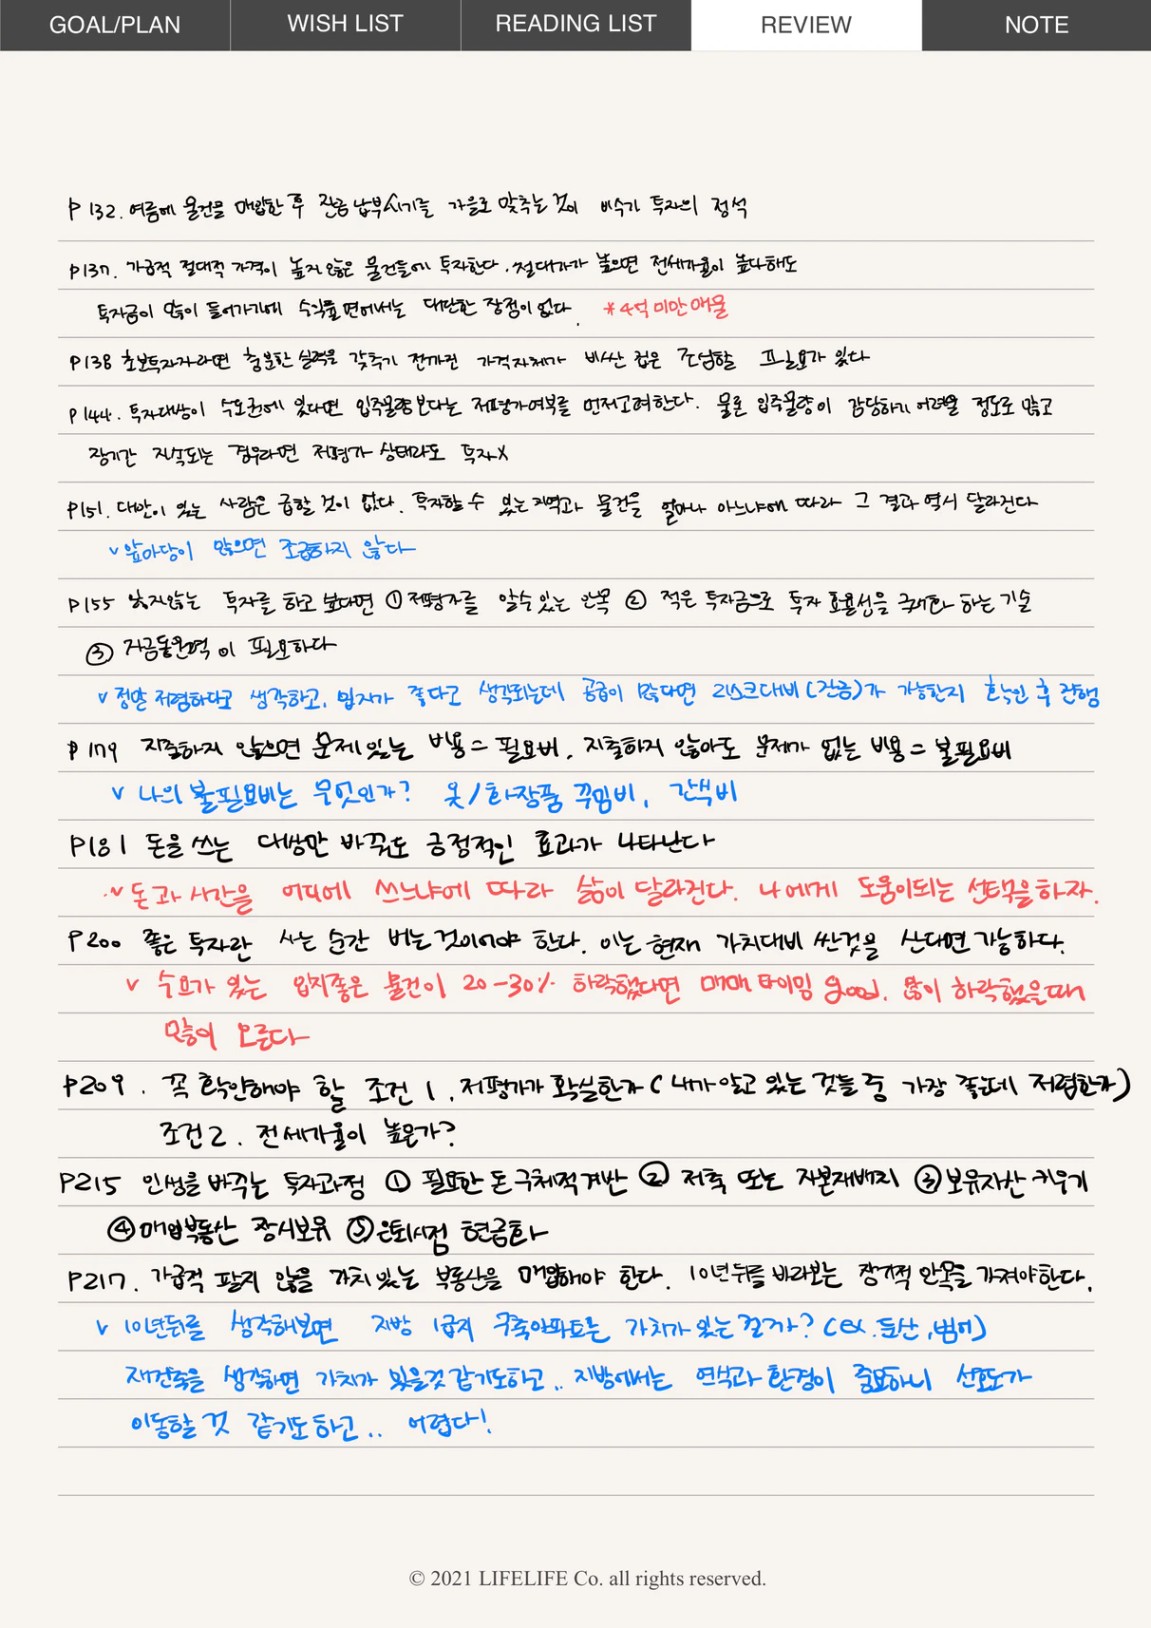 GOAL/PLAN WISH LIST READING LIST REVIEW NOTE
P132. 여름에 물건을 매입한 후 잔금 납부시기를 가을로 맞추는 것이 비수기 투자의 정석
P137. 가급적 절대적 가격이 높지 않은 물건들에 투자한다. 절대가가 높으면 전세가율이 높다해도
투자금이 많이 들어가기에 수익률 면에서는 대단한 장점이 없다. *4억 미만 매물
P138 초보투자자라면 충분한 실력을 갖추기 전까진 가격자체가 비싼 집은 조심할 필요가 있다
P144. 투자대상이 수도권에 있다면 입주물량보다는 저평가여부를 먼저고려한다. 물론 입주물량이 감당하기 어려울 정도로 많고
장기간 지속되는 경우라면 저평가 상태라도 투자X
P151. 대안이 있는 사람은 급할 것이 없다. 투자할 수 있는 지역과 물건을 얼마나 아느냐에 따라 그 결과 역시 달라진다
v 앞마당이 많으면 조급하지 않다
P155 잃지않는 투자를 하고 싶다면 ① 저평가를 알수있는 안목 ② 적은 투자금으로 투자 효율성을 극대화 하는 기술
③ 자금동원력이 필요하다
v 정말 저렴하다고 생각하고, 입지가 좋다고 생각되는데 공급이 많다면 리스크대비(잔금)가 가능한지 확인 후 진행
P179 지출하지 않으면 문제있는 비용 = 필요비, 지출하지 않아도 문제가 없는 비용 = 불필요비
v 나의 불필요비는 무엇인가? 옷/화장품 꾸밈비, 간식비
P181 돈을 쓰는 대상만 바꿔도 긍정적인 효과가 나타난다
v 돈과 시간을 어디에 쓰느냐에 따라 삶이 달라진다. 나에게 도움이되는 선택을하자.
P200 좋은 투자란 사는 순간 버는것이어야 한다. 이는 현재 가치대비 싼것을 산다면가능하다.
v 수요가 있는 입지좋은 물건이 20-30% 하락했다면 매매타이밍 good. 많이 하락했을때
많이 오른다
P209. 꼭 확인해야 할 조건 1. 저평가가 확실한가 (내가 알고 있는 것들 중 가장 좋은데 저렴한가)
조건2. 전세가율이 높은가?
P215 인생을 바꾸는 투자과정 ① 필요한 돈 구체적 계산 ② 저축 또는 자본재배치 ③ 보유자산 키우기
④ 매입부동산 장시보유 ⑤ 은퇴시점 현금화
P217. 가급적 팔지 않을 가치있는 부동산을 매입해야 한다. 10년뒤를 바라보는 장기적 안목을 가져야한다.
v 10년뒤를 생각해보면 지방 1급지 구축아파트는 가치가 있는 걸까? (ex.둔산,범어)
재건축을 생각하면 가치가 있을것 같기도하고.. 지방에서는 연식과 환경이 중요하니 선호도가
이동할 것 같기도 하고.. 어렵다!
© 2021 LIFELIFE Co. all rights reserved.